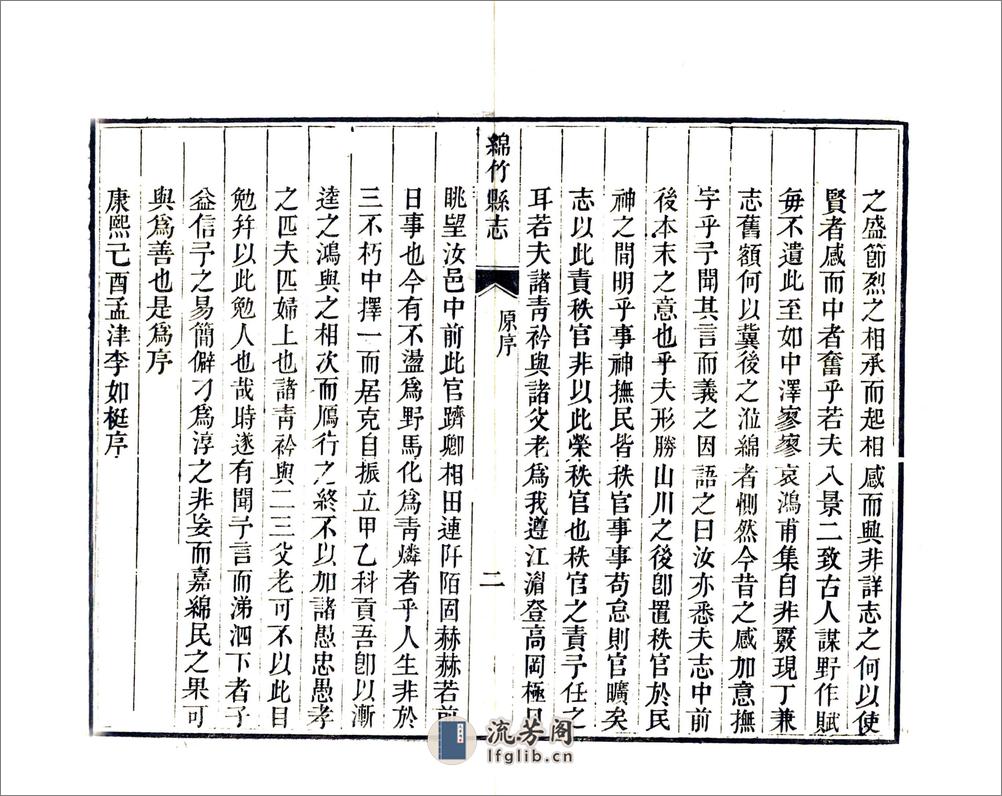 之盛節烈之相承而起相感而興非詳志之何以使
賢者感而中者奮乎若夫八景二致古人謀野作賦
每不遺此至如中澤寥寥哀鴻甫集自非覈現丁兼
志舊額何以冀後之涖綿者惻然今昔之感加意撫
字乎予聞其言而義之因語之曰汝亦悉夫志中前
後本末之意也乎夫形勝山川之後卽置秩官於民
神之間明乎事神撫民皆秩官事事苟怠則官曠矣
志以此責秩官非以此榮秩官也秩官之責予任之
耳若夫諸靑衿與諸父老爲我遵江湄登高岡極目
綿竹縣志
原序
二
眺望汝邑中前此官躋卿相田連阡陌固赫赫若前
日事也今有不盪爲野馬化爲靑燐者乎人生非於
三不朽中擇一而居克自振立甲乙科貢吾卽以漸
逵之鴻與之相次而鴈行之終不以加諸愚忠愚孝
之匹夫匹婦上也諸靑衿與二三父老可不以此自
勉幷以此勉人也哉時遂有聞予言而涕泗下者予
益信予之易簡僻刁爲淳之非妄而嘉綿民之果可
與爲善也是爲序
康熙己酉孟津李如梃序
流芳阁
lfglib.cn